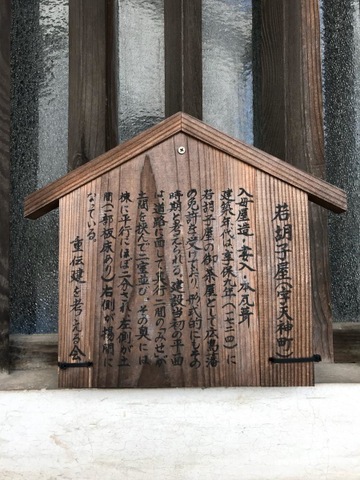 若胡子屋(字天神町)
入母屋造・妻入・本瓦葺
建築年代は、享保九年(一七二四)に
若胡子屋の御茶屋として広島藩
の免許を受けており、形式的にもその
時期と考えられる。建設当初の平面
は道路に面して桁行二間のみせが
土間を挟んで二室並び、その奥には
棟に平行にほぼ二分され、左側が土
間(一部板床あり)右側が揚間に
なっている。
重伝建を考える会